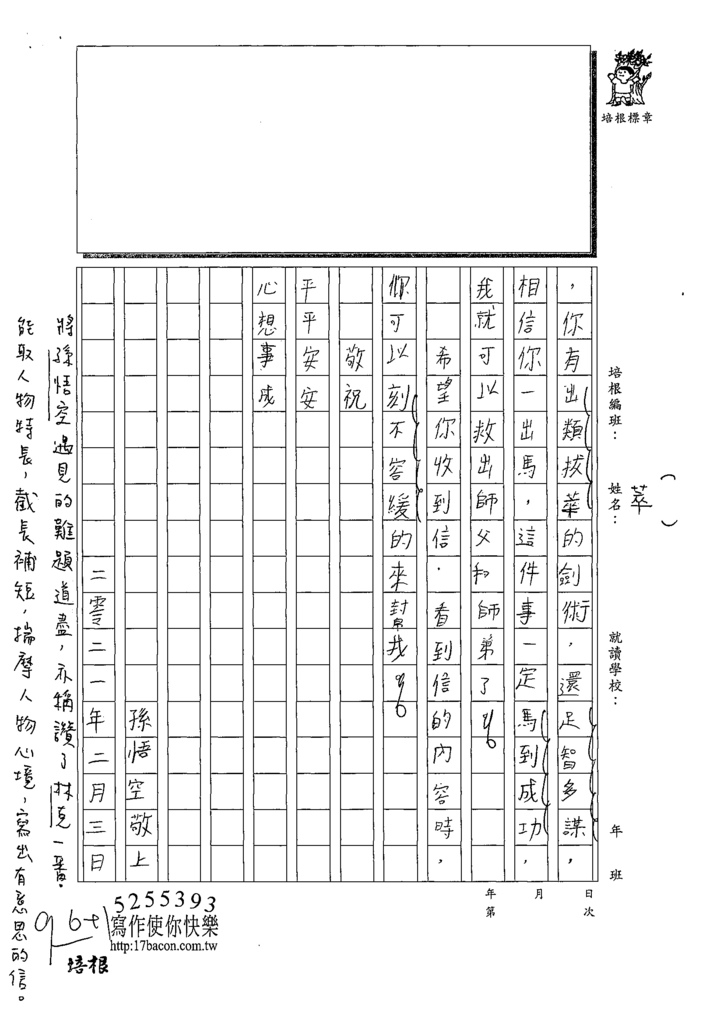 培根標章
培根編班：
姓名：
就讀學校：
年　班
（　）
萃
，你有出類拔萃的劍術，還足智多謀，
相信你一出馬，這件事一定馬到成功，
我就可以救出師父和師弟了
希望你收到信．看到信的內容時，
你可以刻不容緩的來幫我
敬祝
平平安安
心想事成
孫悟空敬上
二零二一年二月三日
將孫悟空遇見的難題道盡，亦稱讚了林克一番．
能取人物特長，截長補短，揣摩人物心境，寫出有意思的信。
年　月　日
第　次
5255393
寫作使你快樂
http:17bacon.com.tw
培根